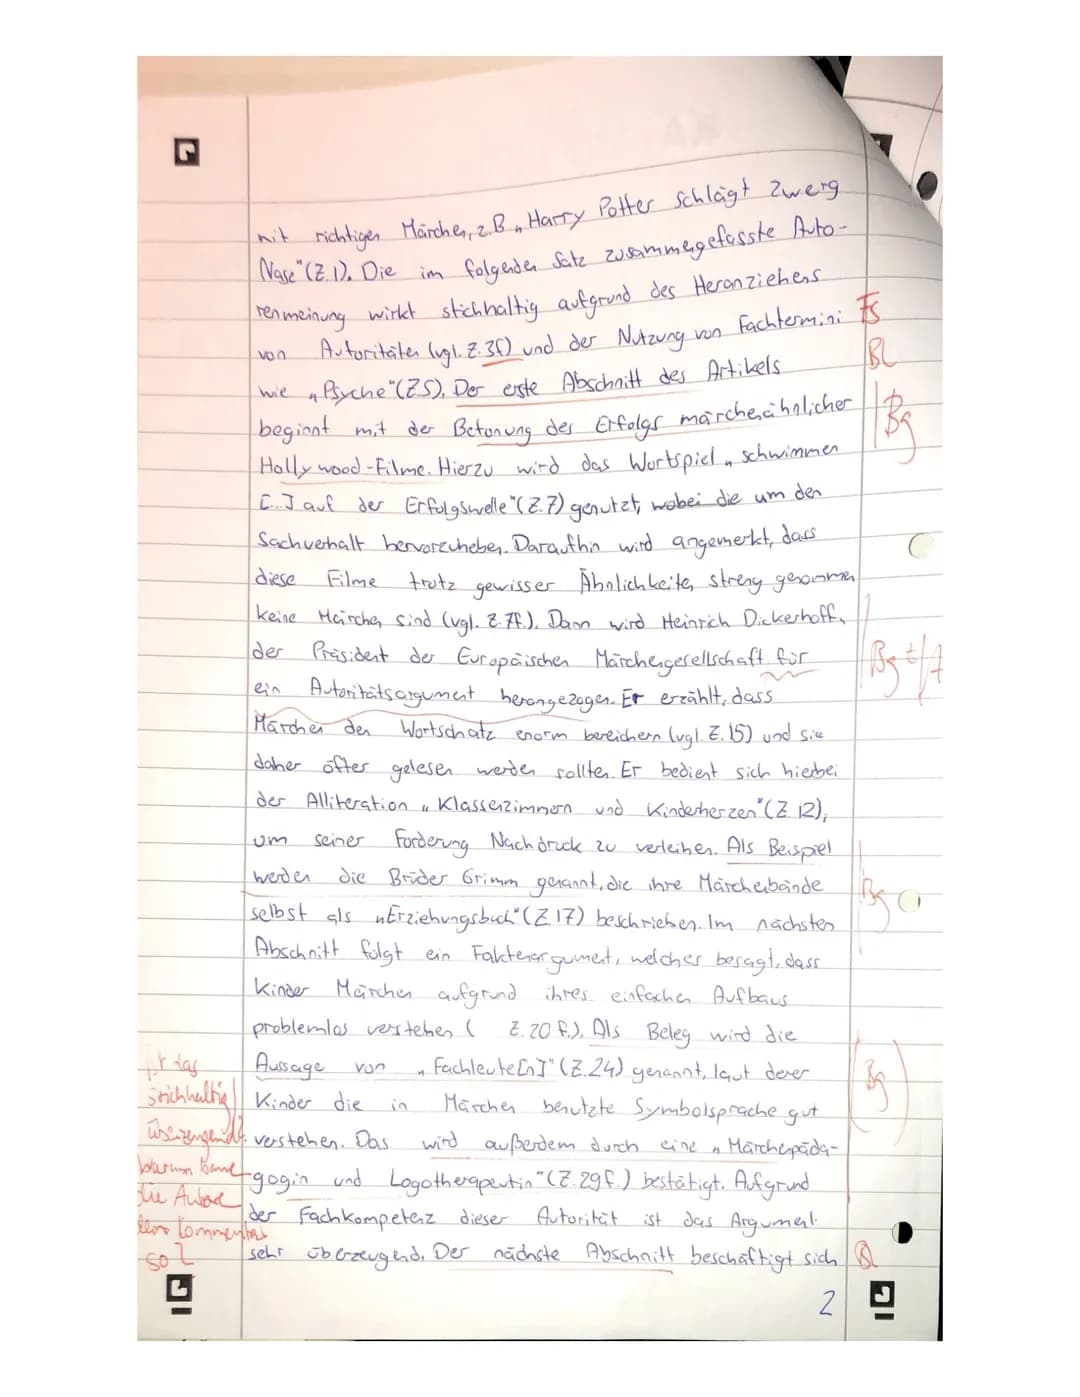 mit richtigen Märchen, z.B. „Harry Potter schlägt Zwerg
Nase" (Z.1). Die im folgenden Satz zusammengefasste Auto-
renmeinung wirkt stichhaltig aufgrund des Heranziehens
von Autoritäten (vgl. Z. 3f) und der Nutzung von Fachtermini FS
wie „Psyche" (Z5). Der erste Abschnitt des Artikels
beginnt mit der Betonung des Erfolgs märchenähnlicher Bg
Hollywood-Filme. Hierzu wird das Wortspiel „schwimmen
[...] auf der Erfolgswelle" (Z.7) genutzt, wobei die um den
Sachverhalt hervorzuheben. Daraufhin wird angemerkt, dass
diese Filme trotz gewisser Ähnlichkeiten streng genommen
keine Märchen sind (vgl. Z.7f.). Dann wird Heinrich Dickerhoff,
der Präsident der Europäischen Märchengesellschaft für Bg
ein Autoritätsargument herangezogen. Er erzählt, dass
Märchen den Wortschatz enorm bereichern (vgl. Z. 15) und sie
daher öfter gelesen werden sollten. Er bedient sich hierbei
der Alliteration „Klassenzimmern und Kinderherzen" (Z. 12),
um seiner Forderung Nachdruck zu verleihen. Als Beispiel
werden die Brüder Grimm genannt, die ihre Märchenbände Bg
selbst als „Erziehungsbuch" (Z.17) beschrieben. Im nächsten
Abschnitt folgt ein Faktenargument, welches besagt, dass
Kinder Märchen aufgrund ihres einfachen Aufbaus
problemlos verstehen ( Z. 20 f.). Als Beleg wird die
Aussage von „Fachleute[n]" (Z.24) genannt, laut derer Bg
Kinder die in Märchen benutzte Symbolsprache gut
verstehen. Das wird außerdem durch eine „Märchenpäda-
gogin und Logotherapeutin" (Z.29f.) bestätigt. Aufgrund
der Fachkompetenz dieser Autorität ist das Argument
sehr überzeugend. Der nächste Abschnitt beschäftigt sich
das
stichhaltig
überzeugend?
Warum
die
so?
2